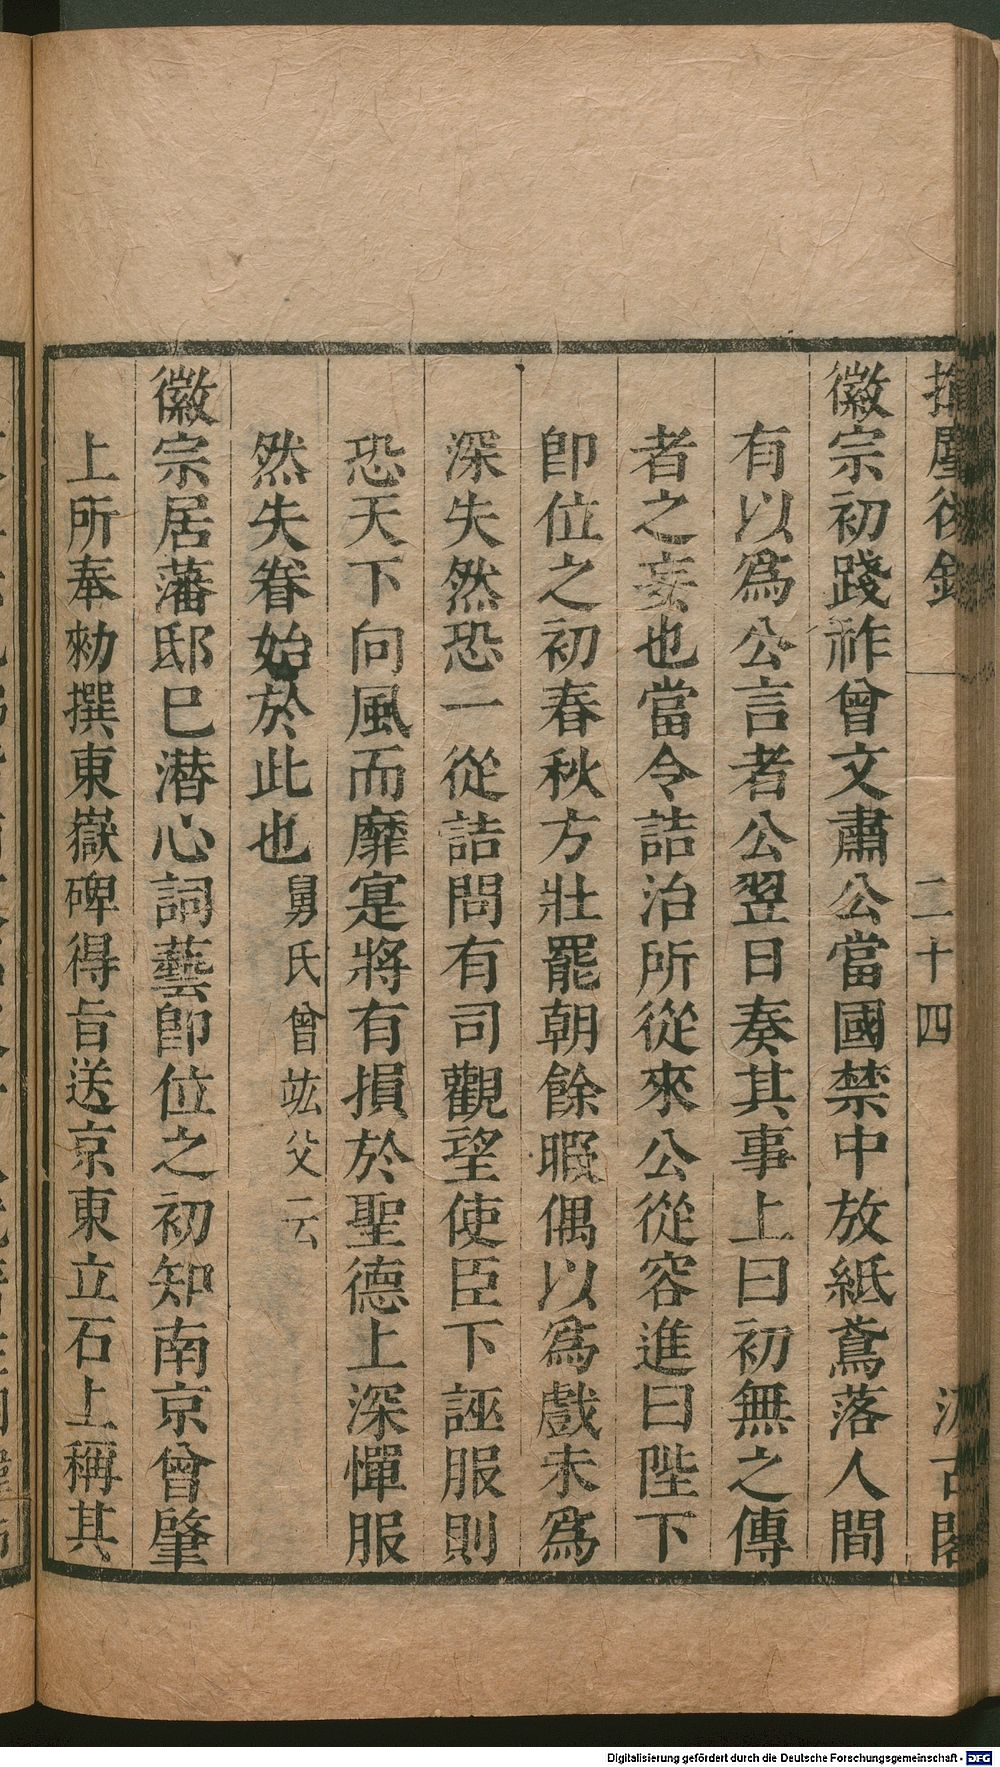 徽宗初踐祚曾文肅公當國禁中放紙鳶落人間
有以爲公言者公翌日奏其事上曰初無之傳
者之妄也當令詰治所從來公從容進曰陛下
卽位之初春秋方壯罷朝餘暇偶以爲戲未爲
深失然恐一從詰問有司觀望使臣下誣服則
恐天下向風而靡寔將有損於聖德上深憚服
然失眷始於此也舅氏曾竑父云
徽宗居藩邸巳潛心詞藝卽位之初知南京曾肇
上所奉勑撰東嶽碑得旨送京東立石上稱其
二十四
Digitalisierung gefördert durch die Deutsche Forschungsgemeinschaft - DFG